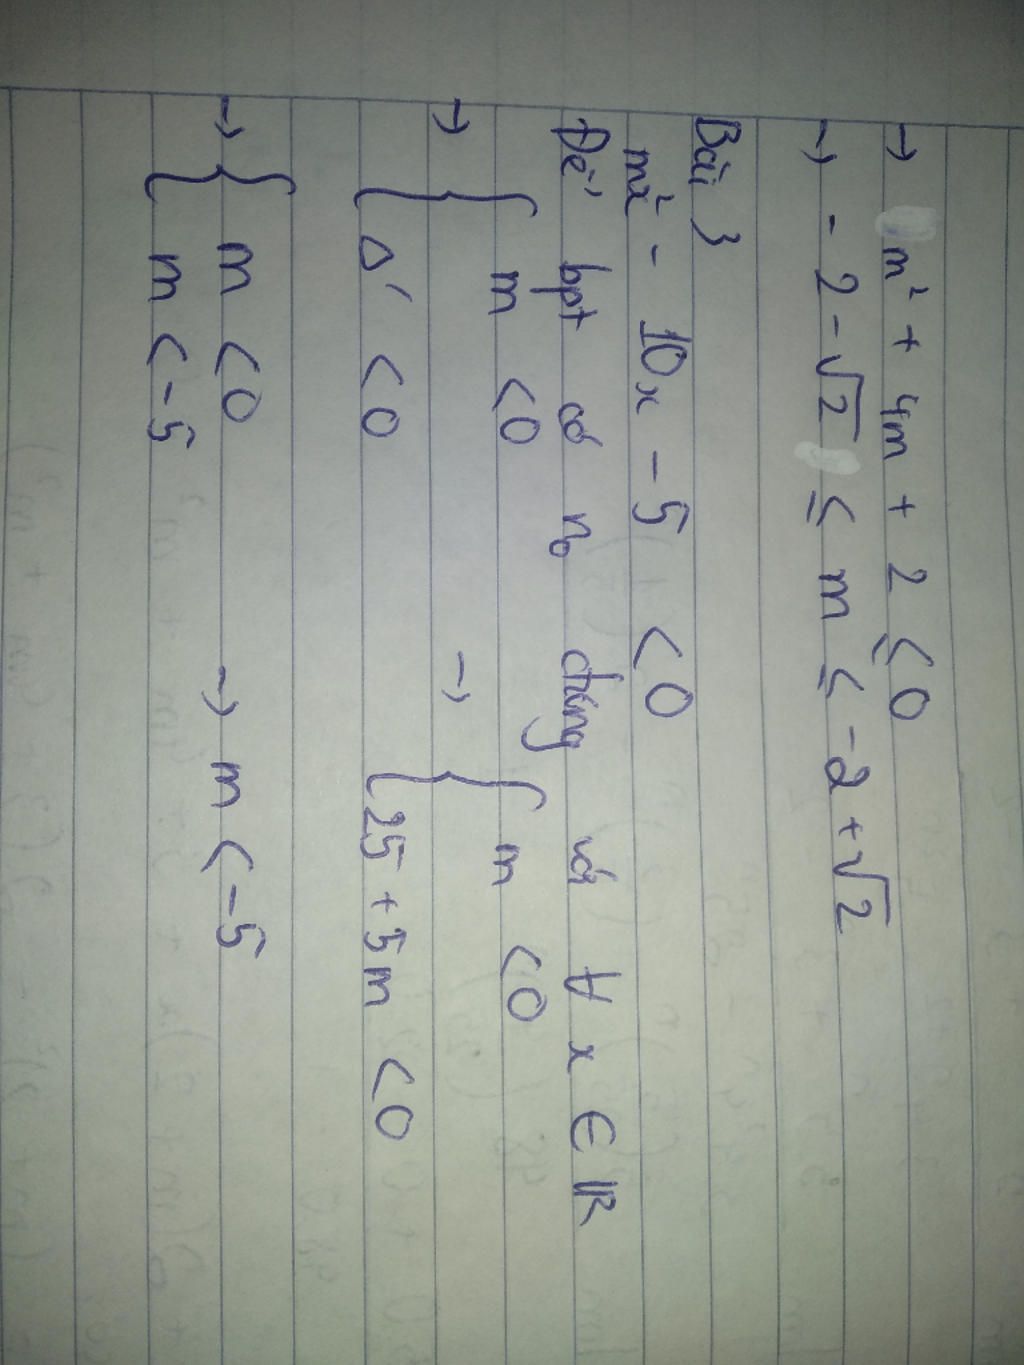 → m² + 4m + 2 ≤ 0
→ - 2 - √2 ≤ m ≤ -2 + √2
Bài 3
mx² - 10x - 5 < 0
Để bpt có n₀ đúng với ∀ x ∈ ℝ
→ { m < 0 → { m < 0
Δ' < 0 25 + 5m < 0
→ { m < 0 → m < -5
m < -5